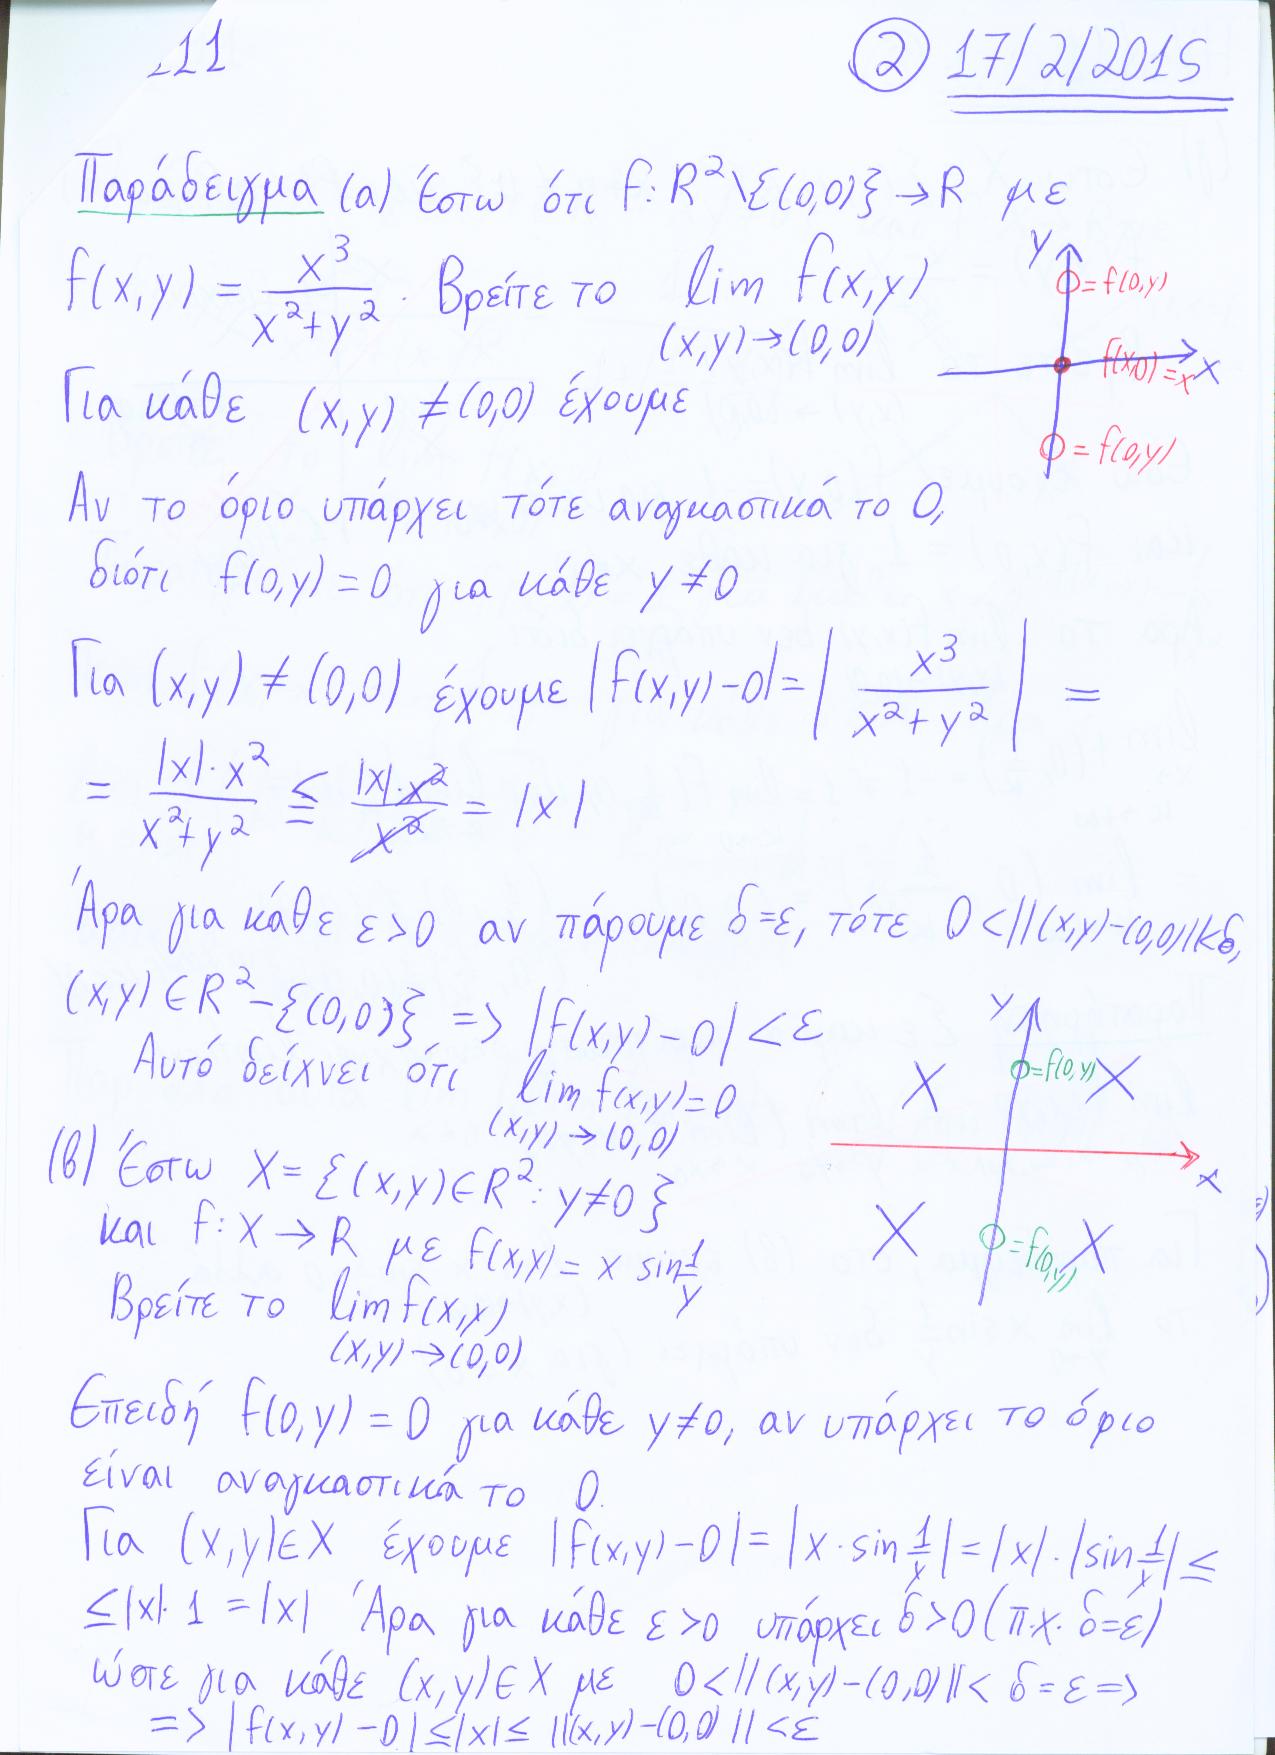 11
② 17/2/2015
Παράδειγμα (α) Έστω ότι f: R²\{(0,0)} → R με
f(x,y) = x³/(x²+y²). Βρείτε το lim f(x,y)
(x,y)→(0,0)
y
= f(0,y)
f(x,0) = x
x
= f(0,y)
Για κάθε (x,y) ≠ (0,0) έχουμε
Αν το όριο υπάρχει τότε αναγκαστικά το 0,
διότι f(0,y) = 0 για κάθε y ≠ 0
Για (x,y) ≠ (0,0) έχουμε |f(x,y)-0| = |x³/(x²+y²)| =
= |x|·x²/(x²+y²) ≦ |x|·x²/x² = |x|
Άρα για κάθε ε>0 αν πάρουμε δ=ε, τότε 0<||(x,y)-(0,0)||<δ,
(x,y) ∈ R²-{(0,0)} => |f(x,y)-0| < ε
Αυτό δείχνει ότι lim f(x,y) = 0
(x,y)→(0,0)
y
X
= f(0,y)
X
x
X
= f(0,y)
X
(β) Έστω X = {(x,y) ∈ R²: y≠0}
και f: X → R με f(x,y) = x sin 1/y
Βρείτε το lim f(x,y)
(x,y)→(0,0)
Επειδή f(0,y) = 0 για κάθε y≠0, αν υπάρχει το όριο
είναι αναγκαστικά το 0.
Για (x,y) ∈ X έχουμε |f(x,y)-0| = |x · sin 1/x| = |x|·|sin 1/x| ≤
≤ |x|·1 = |x| Άρα για κάθε ε>0 υπάρχει δ>0 (π.χ. δ=ε)
ώστε για κάθε (x,y) ∈ X με 0<||(x,y)-(0,0)||< δ=ε =>
=> |f(x,y)-0| ≤ |x| ≤ ||(x,y)-(0,0)|| < ε